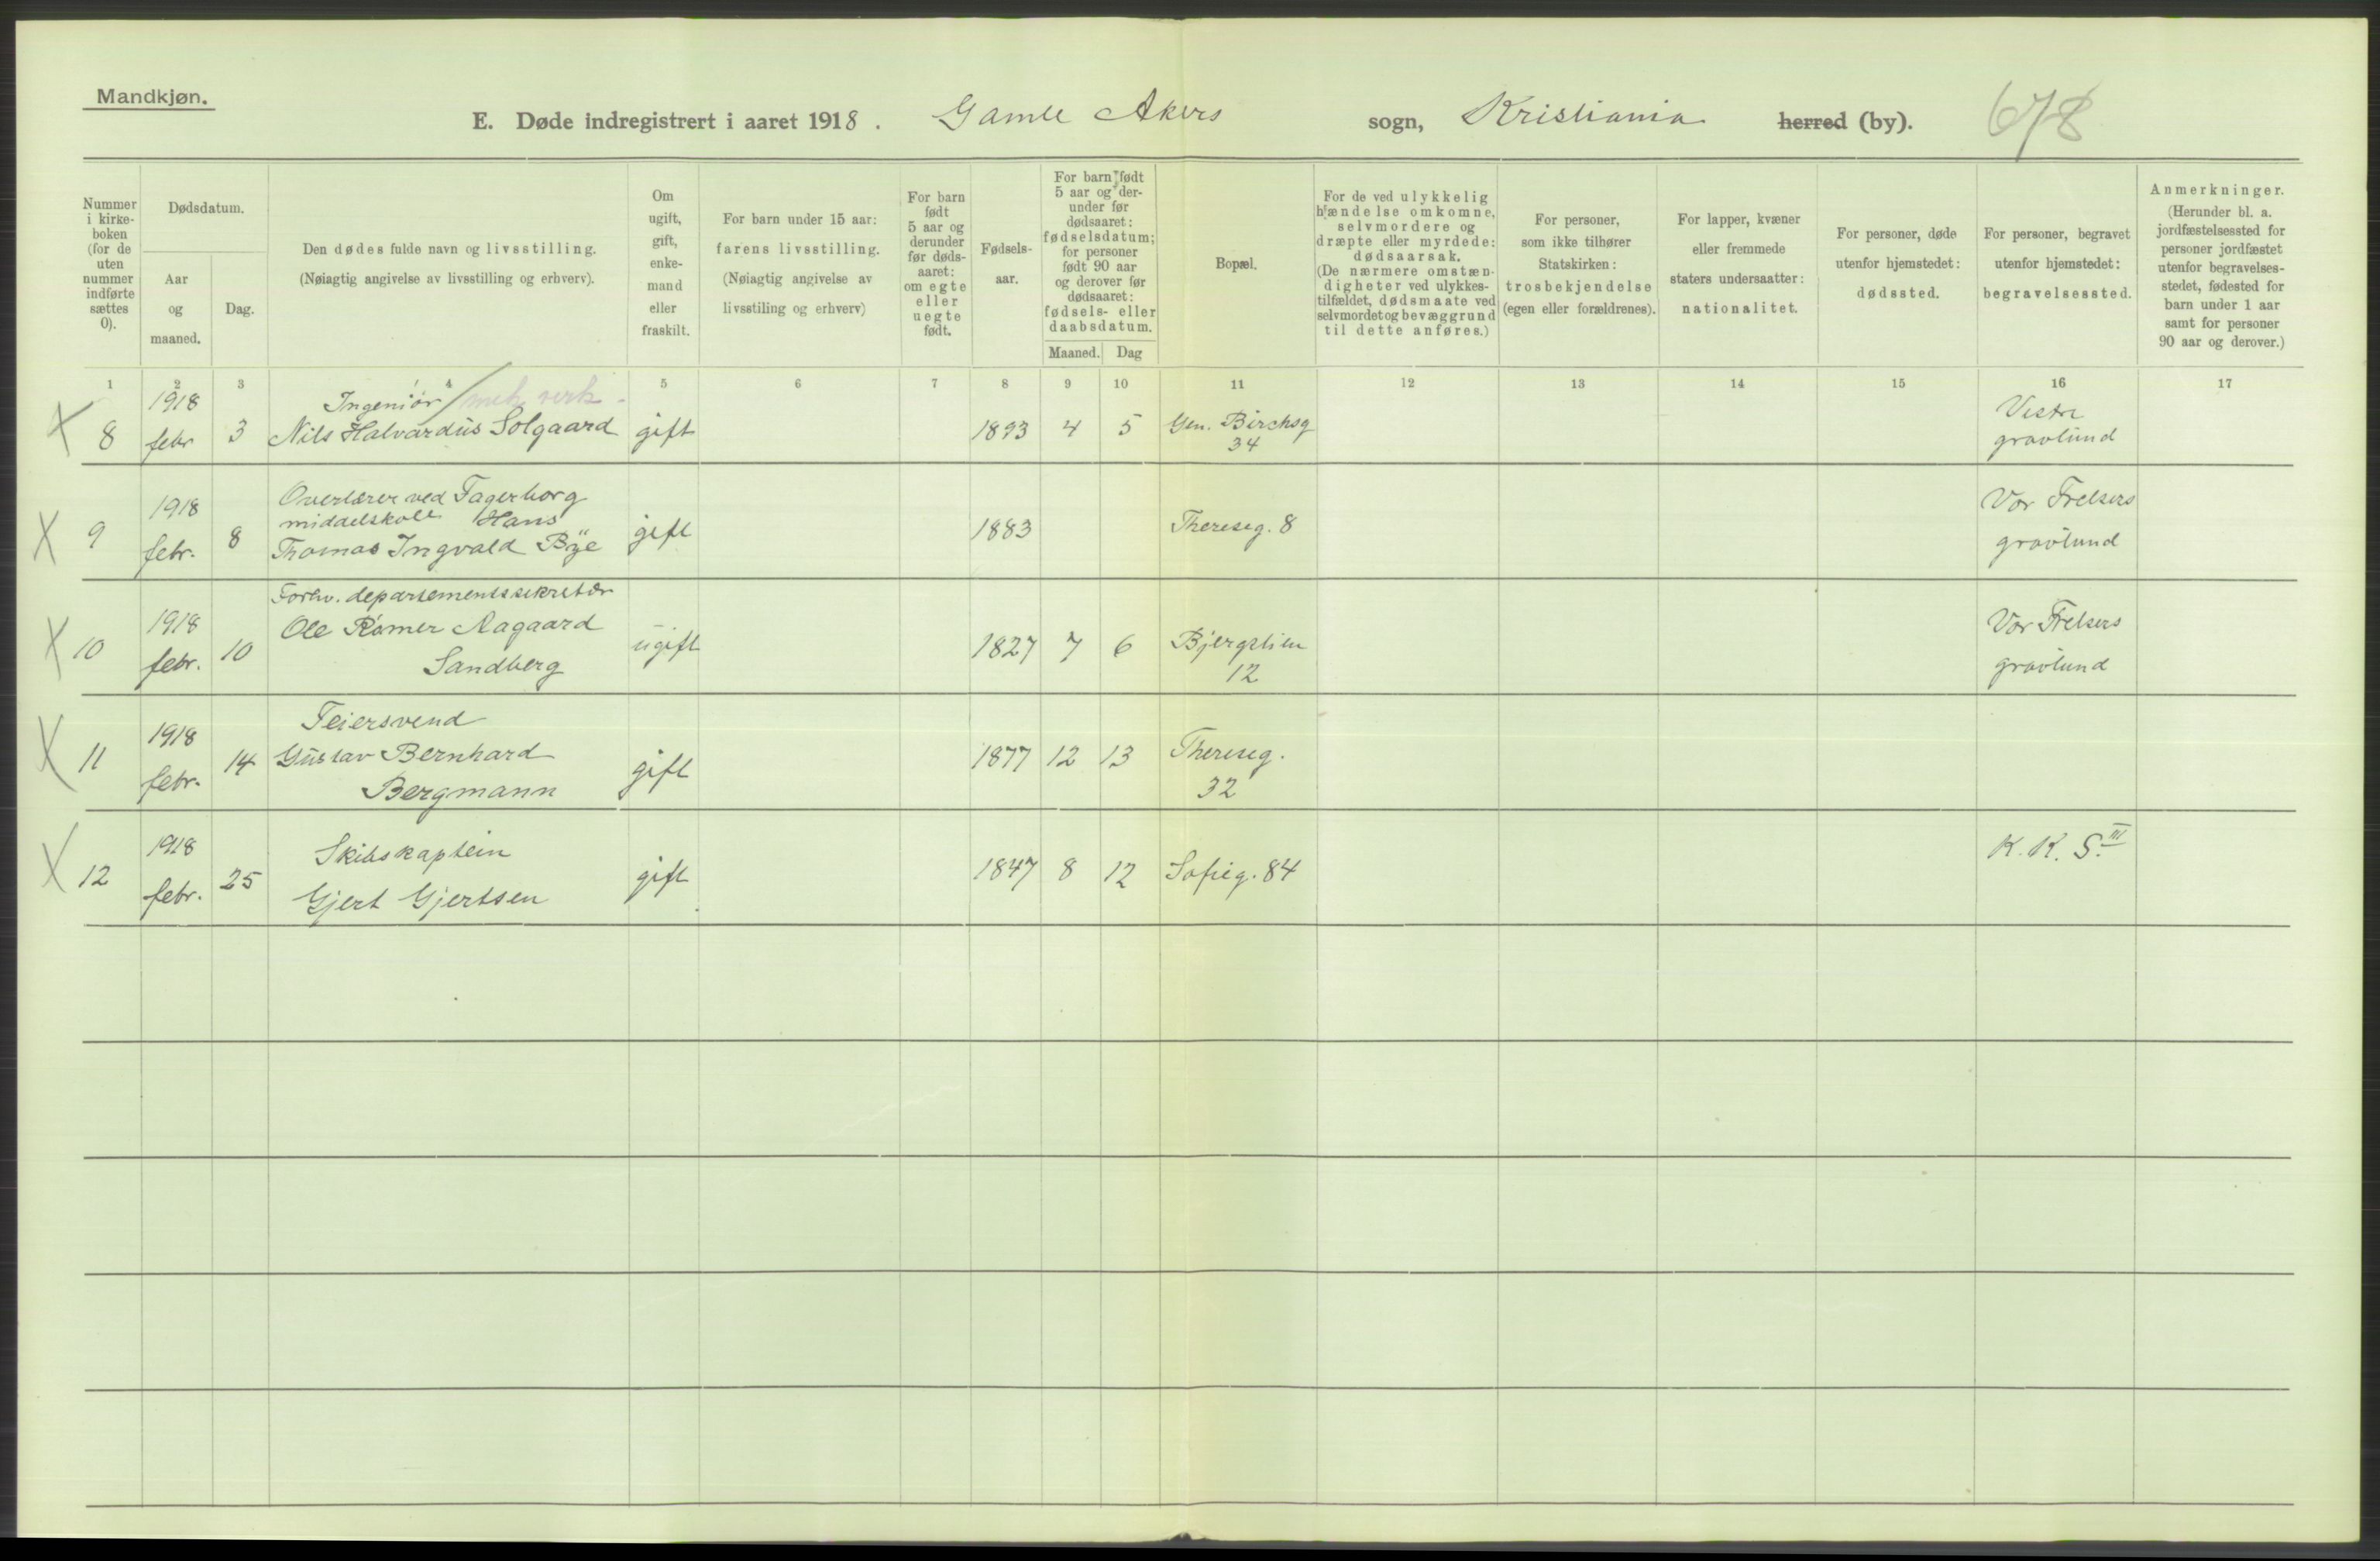 Mandkjøn.
E. Døde indregistrert i aaret 1918. Gamle Akers sogn, Kristiania herred (by). 678
Nummer i kirkeboken (for de uten nummer indførte sættes 0).
Dødsdatum.
Aar og maaned.
Dag.
Den dødes fulde navn og livsstilling.
(Nøiagtig angivelse av livsstilling og erhverv).
Om ugift, gift, enkemand eller fraskilt.
For barn under 15 aar:
farens livsstilling.
(Nøiagtig angivelse av livsstiling og erhverv)
For barn født 5 aar og derunder før dødsaaret: om egte eller uegte født.
Fødselsaar.
For barn født 5 aar og derunder før dødsaaret: fødselsdatum; for personer født 90 aar og derover før dødsaaret: fødsels- eller daabsdatum.
Maaned. Dag
Bopæl.
For de ved ulykkelig hændelse omkomne, selvmordere og dræpte eller myrdede: dødsaarsak.
(De nærmere omstændigheter ved ulykkestilfældet, dødsmaate ved selvmordet og bevæggrund til dette anføres.)
For personer, som ikke tilhører Statskirken: trosbekjendelse (egen eller forældrenes).
For lapper, kvæner eller fremmede staters undersaatter: nationalitet.
For personer, døde utenfor hjemstedet: dødssted.
For personer, begravet utenfor hjemstedet: begravelsessted.
Anmerkninger.
(Herunder bl. a. jordfæstelsessted for personer jordfæstet utenfor begravelsesstedet, fødested for barn under 1 aar samt for personer 90 aar og derover.)
1 2 3 4 5 6 7 8 9 10 11 12 13 14 15 16 17
X 8 1918 febr 3 Ingeniør / mek verk. Nils Halvardus Solgaard gift 1893 4 5 Gen. Birchsg 34 Vestre gravlund
X 9 1918 febr. 8 Overlærer ved Fagerborg middelskole Hans Thomas Ingvald Bye gift 1883 Thereseg. 8 Vor Frelsers gravlund
X 10 1918 febr. 10 Forhv. departementssekretær Ole Rømer Aagaard Sandberg ugift 1827 7 6 Bjergslien 12 Vor Frelsers gravlund
X 11 1918 febr. 14 Feiersvend Gustav Bernhard Bergmann gift 1877 12 13 Thereseg. 32
X 12 1918 febr. 25 Skibskaptein Gjert Gjertsen gift 1847 8 12 Sofieg. 84 K. K. S. III